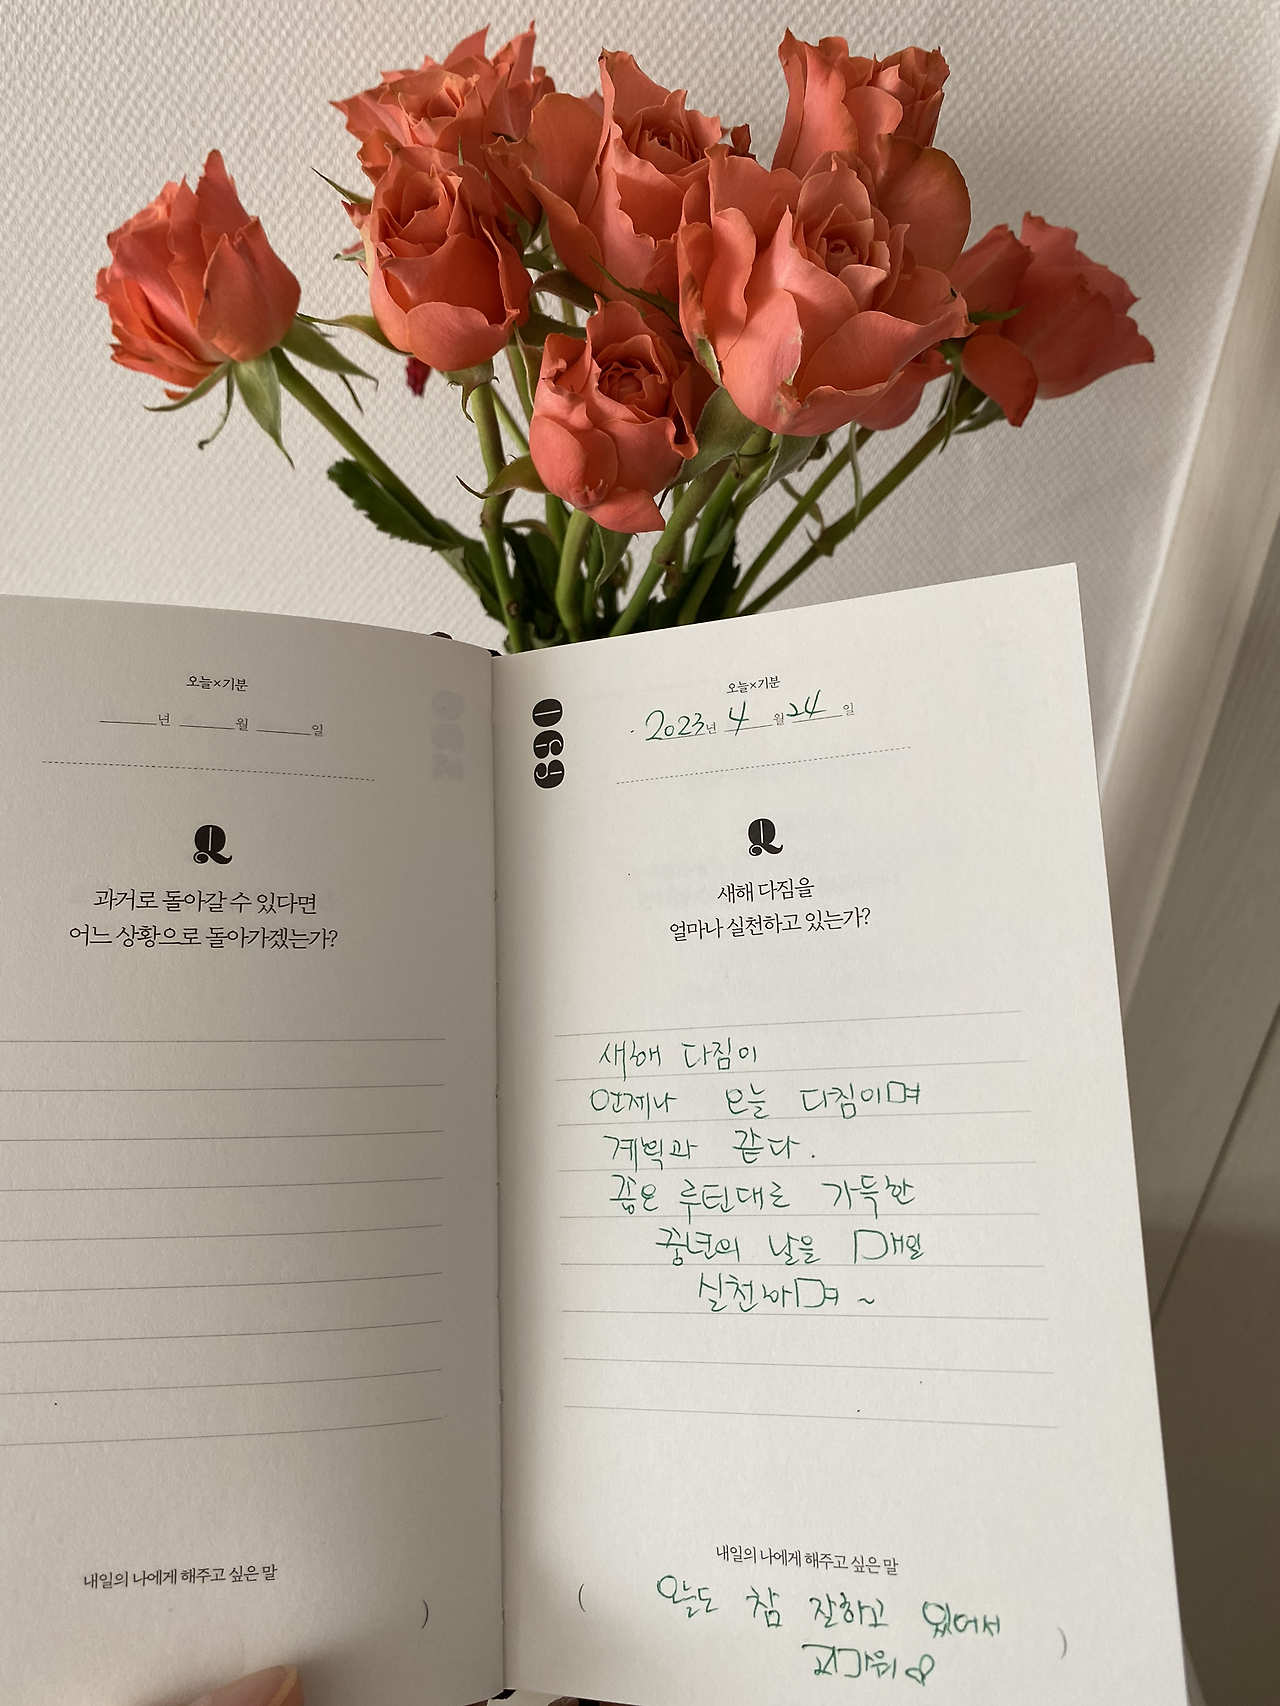 오늘×기분
년 월 일
Q
과거로 돌아갈 수 있다면
어느 상황으로 돌아가겠는가?
내일의 나에게 해주고 싶은 말
)
069
오늘×기분
2023년 4월 24일
Q
새해 다짐을
얼마나 실천하고 있는가?
새해 다짐이
언제나 오늘 다짐이며
계획과 같다.
좋은 루틴대로 가득한
중년의 날을 매일
실천하며~
내일의 나에게 해주고 싶은 말
( 오늘도 참 잘하고 있어서
고마워♡ )